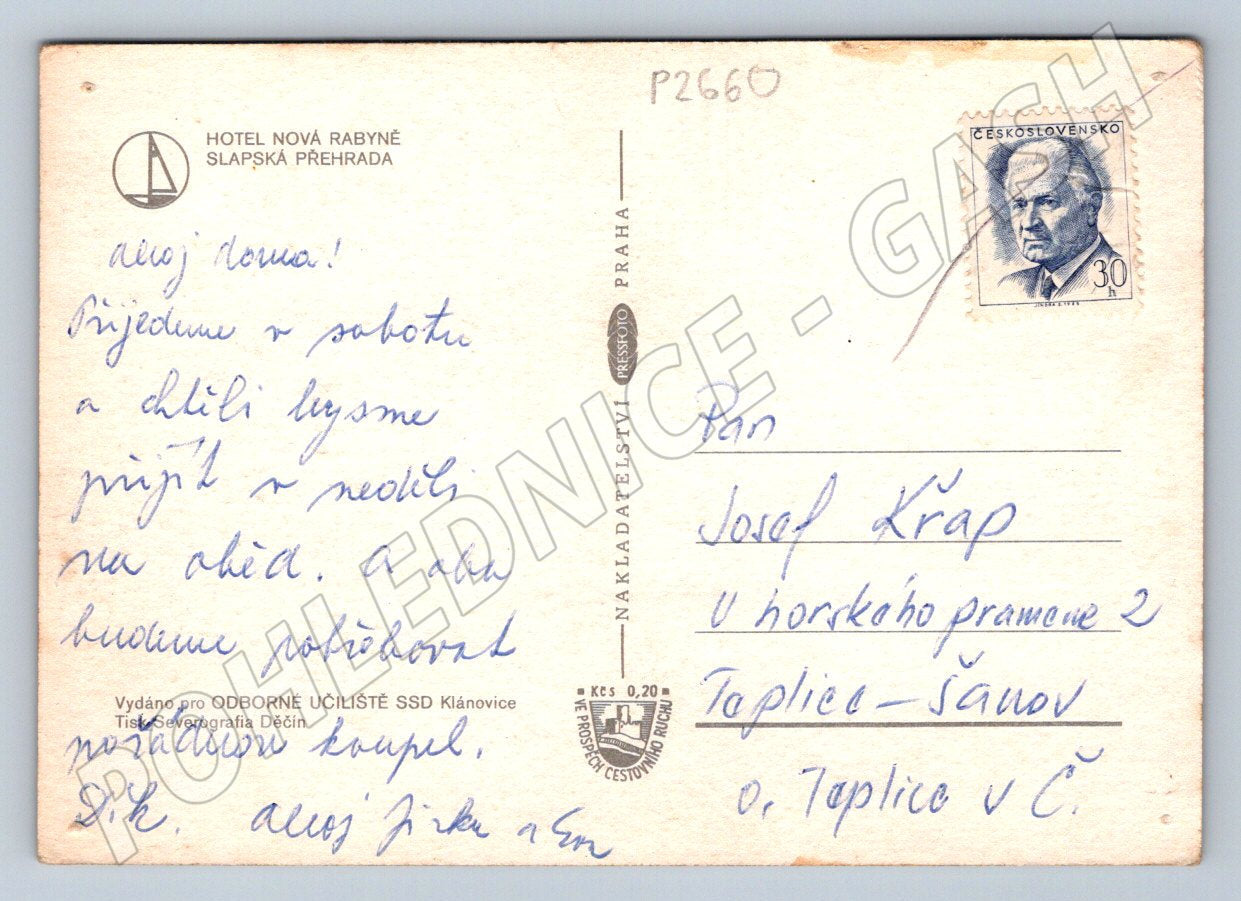 P2660
HOTEL NOVÁ RABYNĚ
SLAPSKÁ PŘEHRADA
Ahoj doma!
Přijedeme v sobotu
a chtěli bysme
přijít v neděli
na oběd. A oba
budeme potřebovat
Vydáno pro ODBORNÉ UČILIŠTĚ SSD Klánovice
Tisk Severografia Děčín
pořádnou koupel.
Dík. Ahoj Jirka a Eva
NAKLADATELSTVÍ PRESSFOTO PRAHA
Kčs 0,20
VE PROSPĚCH CESTOVNÍHO RUCHU
ČESKOSLOVENSKO
30
h
Pan
Josef Křap
U horského pramene 2
Teplice – Šanov
o. Teplice v Č.
POHLEDNICE - GASH